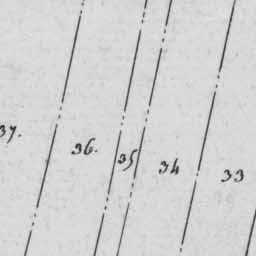 37. 36. 35 34 33